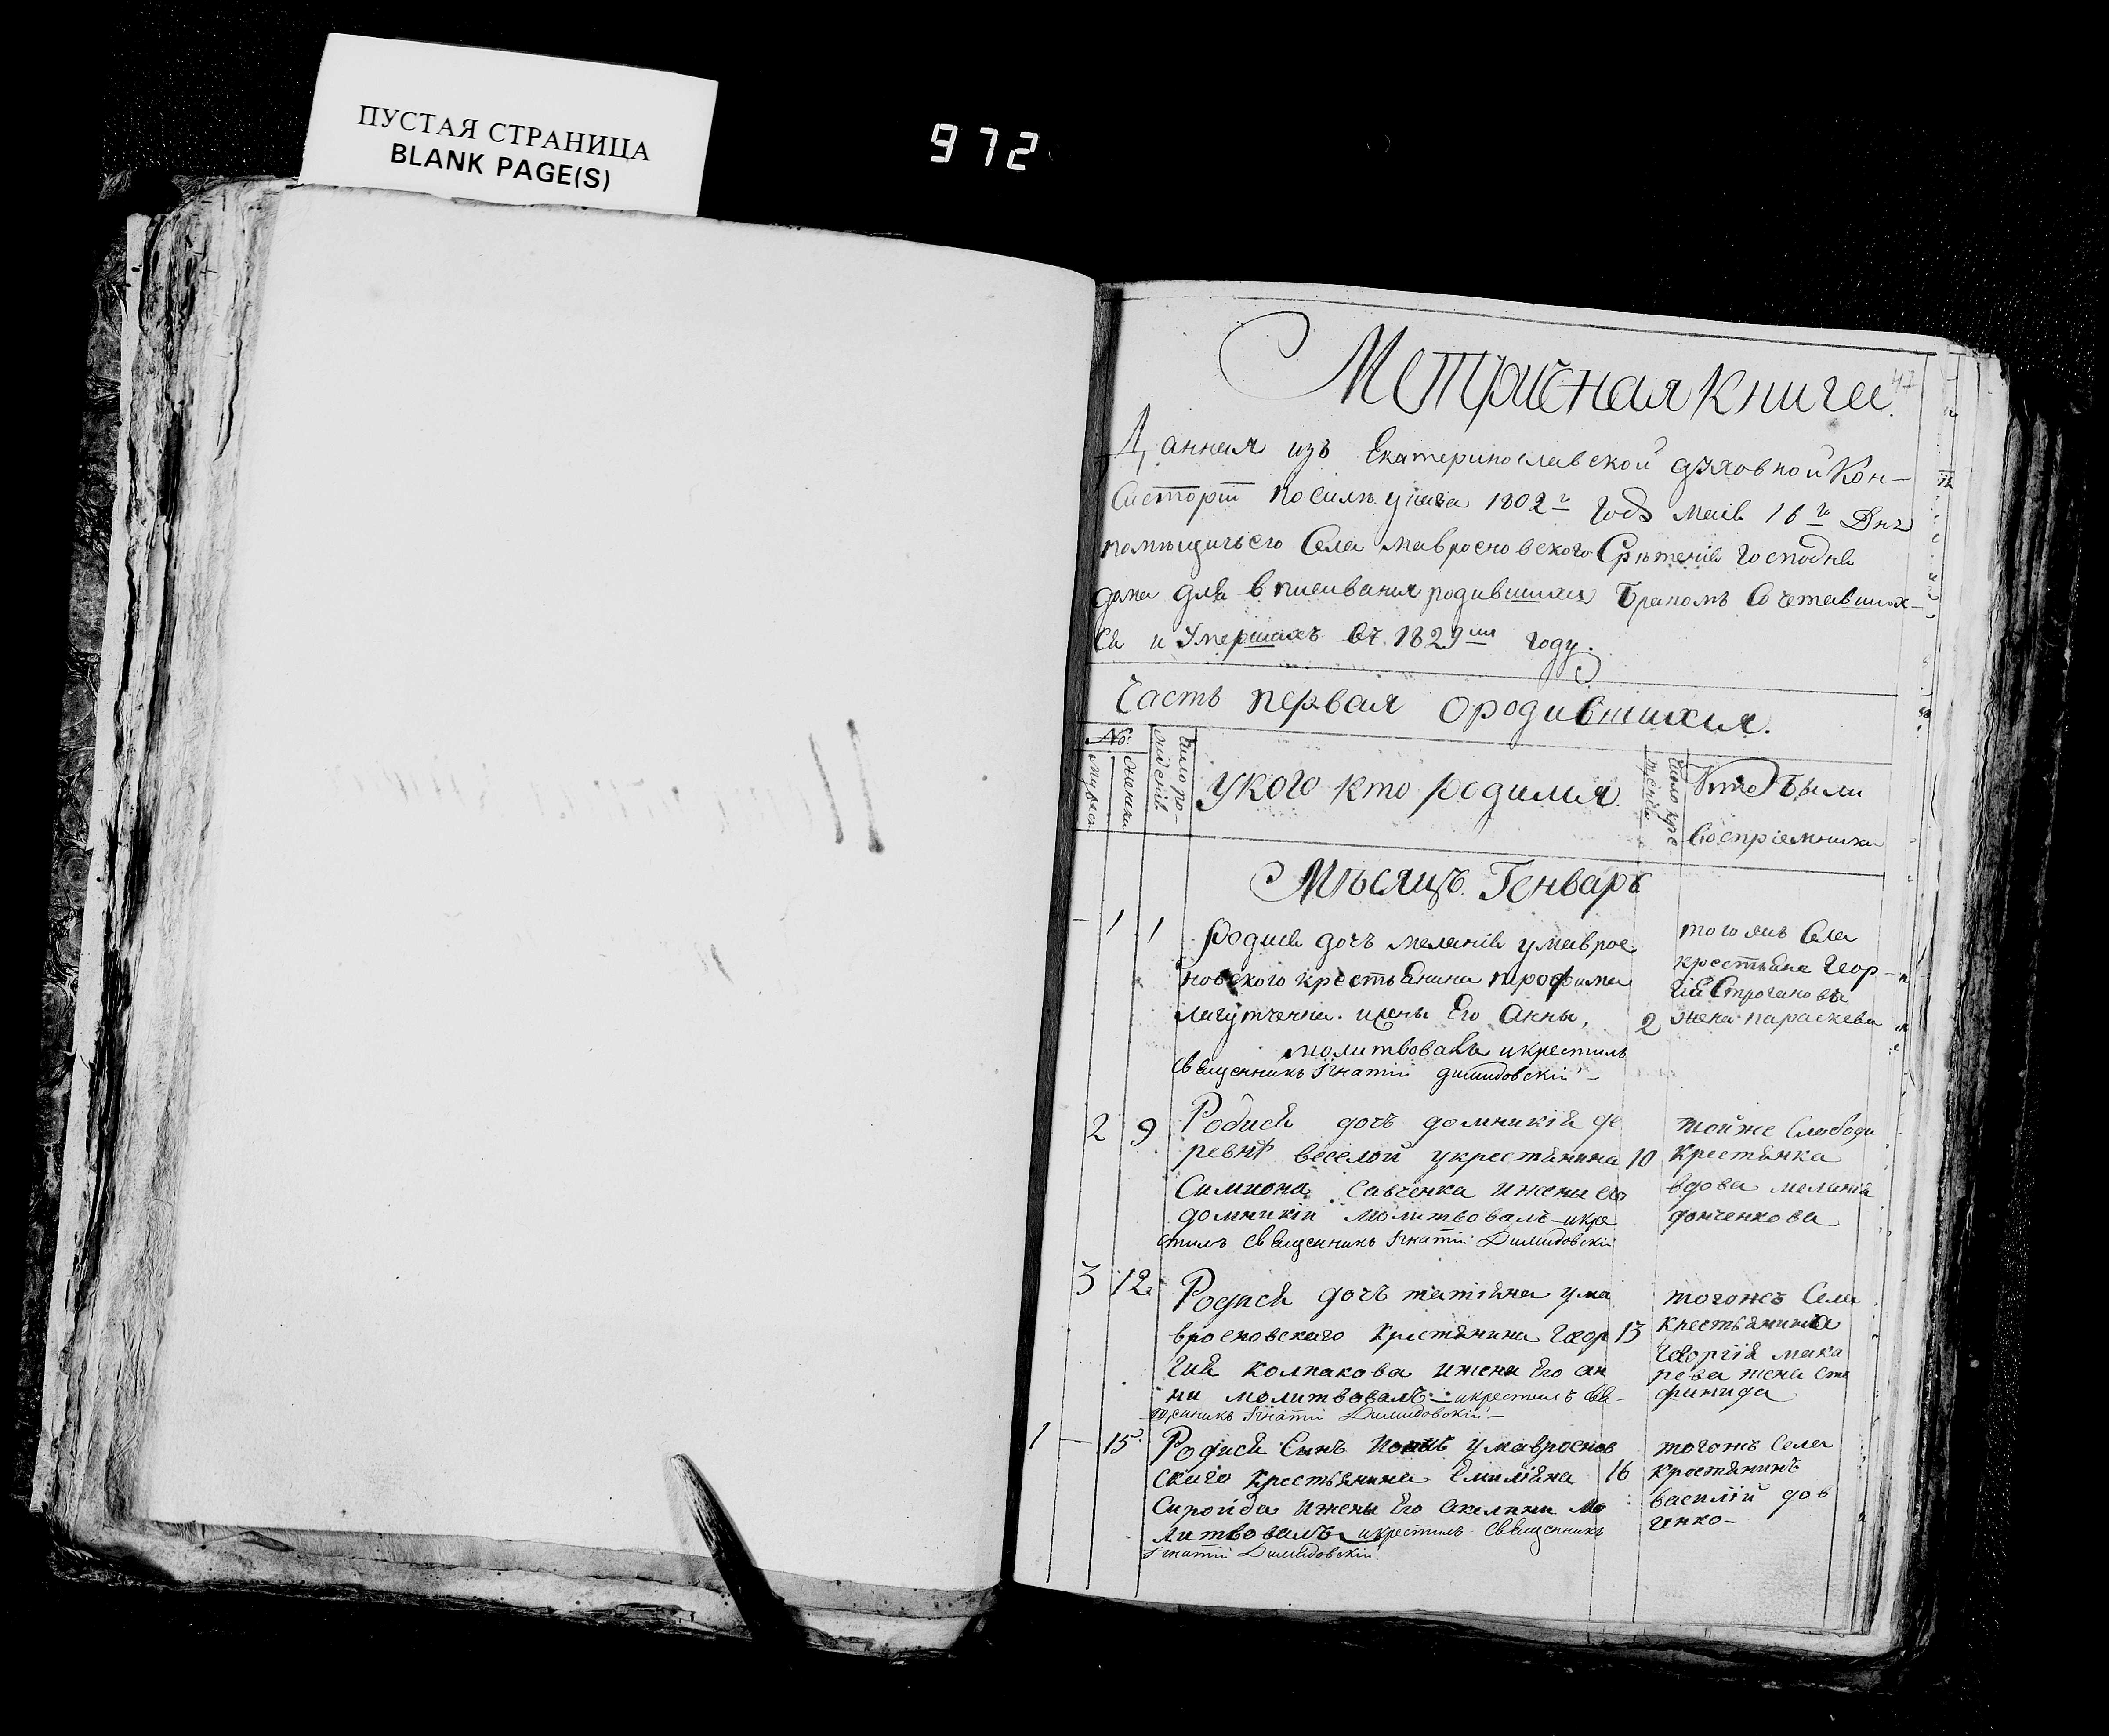 ПУСТАЯ СТРАНИЦА
BLANK PAGE(S)
972
47
Метричная книга.
Данная изъ Екатеринославской духовной Кон-
систоріи по силѣ указа 1802го года маія 16го дня
помѣщичьего села мавроеновского Срѣтенія господня
дома для вписиванія родившихся браком сочетавших-
ся и умершихъ въ 1829м году.
Часть первая о родившихся.
№:
мужеск
женски
число ро-
жденія
У кого кто родился.
число кре-
щенія
кто были
воспріемники
Мѣсяцъ Генварь
1 1
родися дочъ меланія у маврое
новского крестьянина трофима
лагутченка и жены Его Анны,
молитвовалъ и крестилъ
священникъ Ігнатій димидовскій
2
того жъ села
крестьяна Геор-
гія Строганова
жена параскева
2 9
Родися дочъ домникія де
ревнѣ веселой у крестянина
Симиона Савченка и жени его
домникіи молитвовалъ и кре
стилъ священникъ Ігнатій Димидовскій
10
тойже слободи
крестянка
вдова меланія
донченкова
3 12
Родися дочъ татіяна у ма
вроеновскаго крестянина Геор
гия колпакова и жени Его ан
ни молитвовалъ и крестилъ свя-
щенникъ Ігнатій Димидовскій
13
тогожъ села
крестьянина
Георгія мака
рева жена
1 — 15
Родися Сынъ у мавроенов
скаго крестьянина Емиліяна
Сироида и жены Его Акелини мо
литвовалъ и крестилъ священникъ
Ігнатій Димидовскій
16
тогожъ села
крестянинъ
василій дов
генко